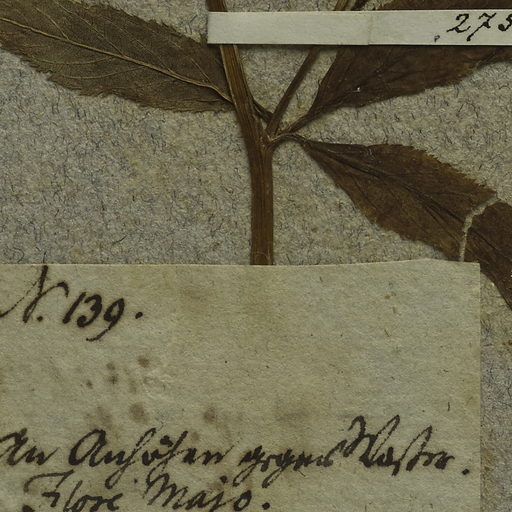 275
N. 139.
An Anhöhen gegen Wasser.
Flore Majo.